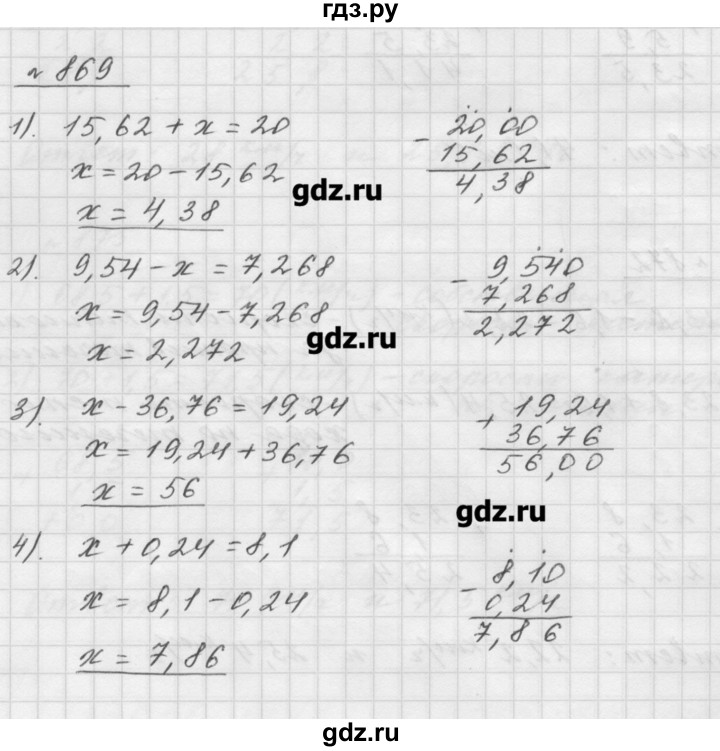 гдз.ру
№ 869
1). 15,62 + x = 20
x = 20 - 15,62
x = 4,38
- 20,00
15,62
4,38
gdz.ru
2). 9,54 - x = 7,268
x = 9,54 - 7,268
x = 2,272
- 9,540
7,268
2,272
gdz.ru
3). x - 36,76 = 19,24
x = 19,24 + 36,76
x = 56
+ 19,24
36,76
56,00
gdz.ru
4). x + 0,24 = 8,1
x = 8,1 - 0,24
x = 7,86
- 8,10
0,24
7,86
gdz.ru